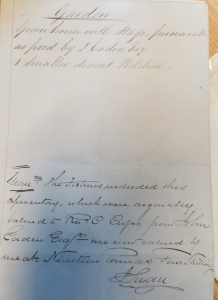 Garden
Greenhouse with Stage furnace &c
as fixed by J Caden Esq
1 Smaller do not
The Fixtures included this
Inventory, which were originally
valued to Revd C from John
Caden Esqr are now valued to
me at Nineteen Pounds Four Shillings